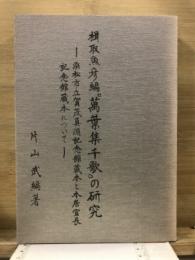 楫取魚彦編『萬葉集千歌』の研究
―浜松市立賀茂真淵記念館蔵本と本居宣長
記念館蔵本について―
片山武編著